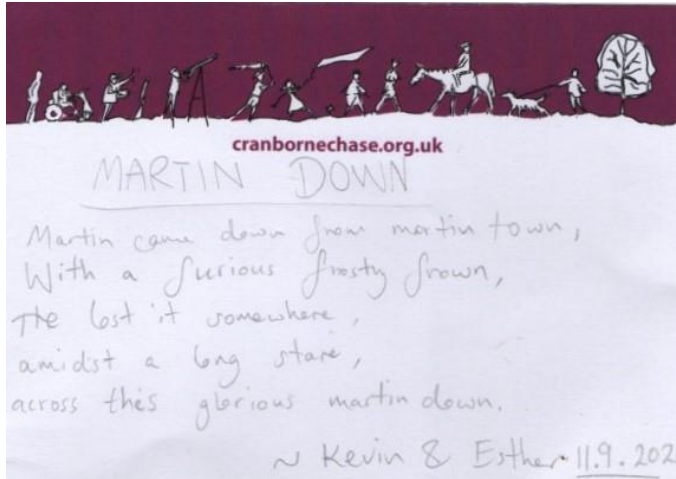 cranbornechase.org.uk
MARTIN DOWN
Martin came down from martin town,
With a furious frosty frown,
He lost it somewhere,
amidst a long stare,
across this glorious martin down.
~ Kevin & Esther 11.9.202